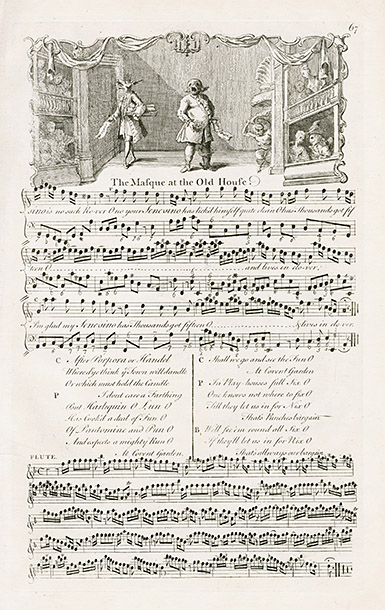 67
The Masque at the Old House.
is no such Ro-ver O no your Senesino has tickl'd himself quite Sken O has thousands got fif
teen O and lives in clo-ver,
I'm glad my Senesino has Thousands got fifteen O & lives in clo ver
C After Porpora or Handel
Where d'ye think ye Town will dandle
Or which must hold the Candle
P I dont care a Farthing
But Harlequin O Lun O
Has Cook'd a deal of Fun O
Of Pantomine and Pun O
And expects a mighty Run O
At Covent Garden.
C Shall we go and see the Fun O
At Covent Garden
P In Play-houses full Six O
One knows not where to fix O
Till they let us in for Nix O
Thats Punches bargain
B. Will see'm round all Six O
If they'll let us in for Nix O
Thats allways our bargain
FLUTE